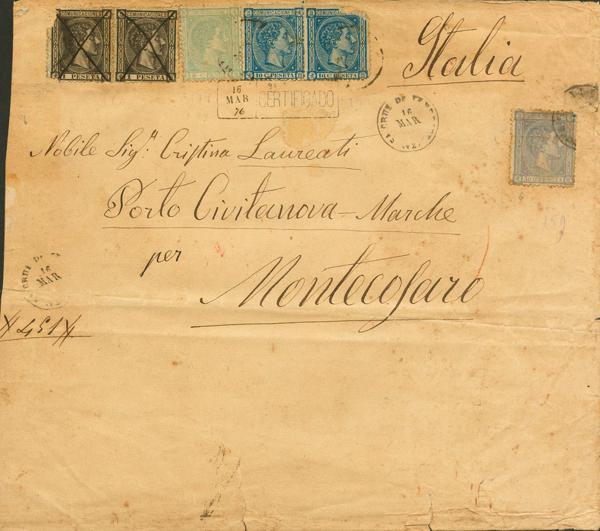 COMUNICACIONES COMUNICACIONES COMUNICACIONES COMUNICACIONES
1 PESETA 1 PESETA 10 C. PESETA 10 C. PESETA
Italia
16
MAR
76
CERTIFICADO
CRUZ DE
16
MAR
Nobile Sig.ª Cristina Laureati
Porto Civitanova - Marche
per
Montecosaro
CRUZ DE
16
MAR
451